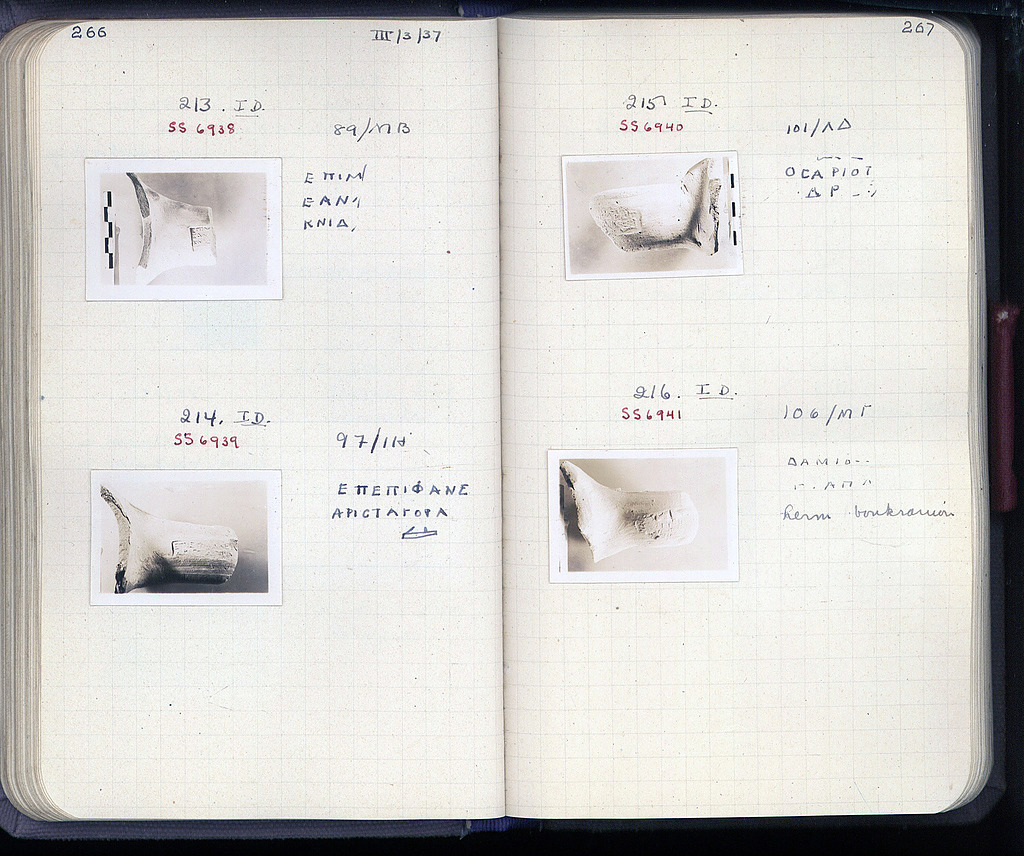 266
III/3/37
213. ID.
SS 6938
89/ΜΒ
ΕΠΙΜ
ΕΑΝ
ΚΝΙΔ
214. ID.
SS 6939
97/ΙΗ
ΕΠΕΠΙΦΑΝΕ
ΑΡΙCΤΑΓΟΡΑ
267
215 ID.
SS 6940
101/ΛΔ
ΟCΑΡΙΟΤ
ΔΡ
216. ID.
SS 6941
106/ΜΓ
ΔΑΜΙΟ--
herm boukranion